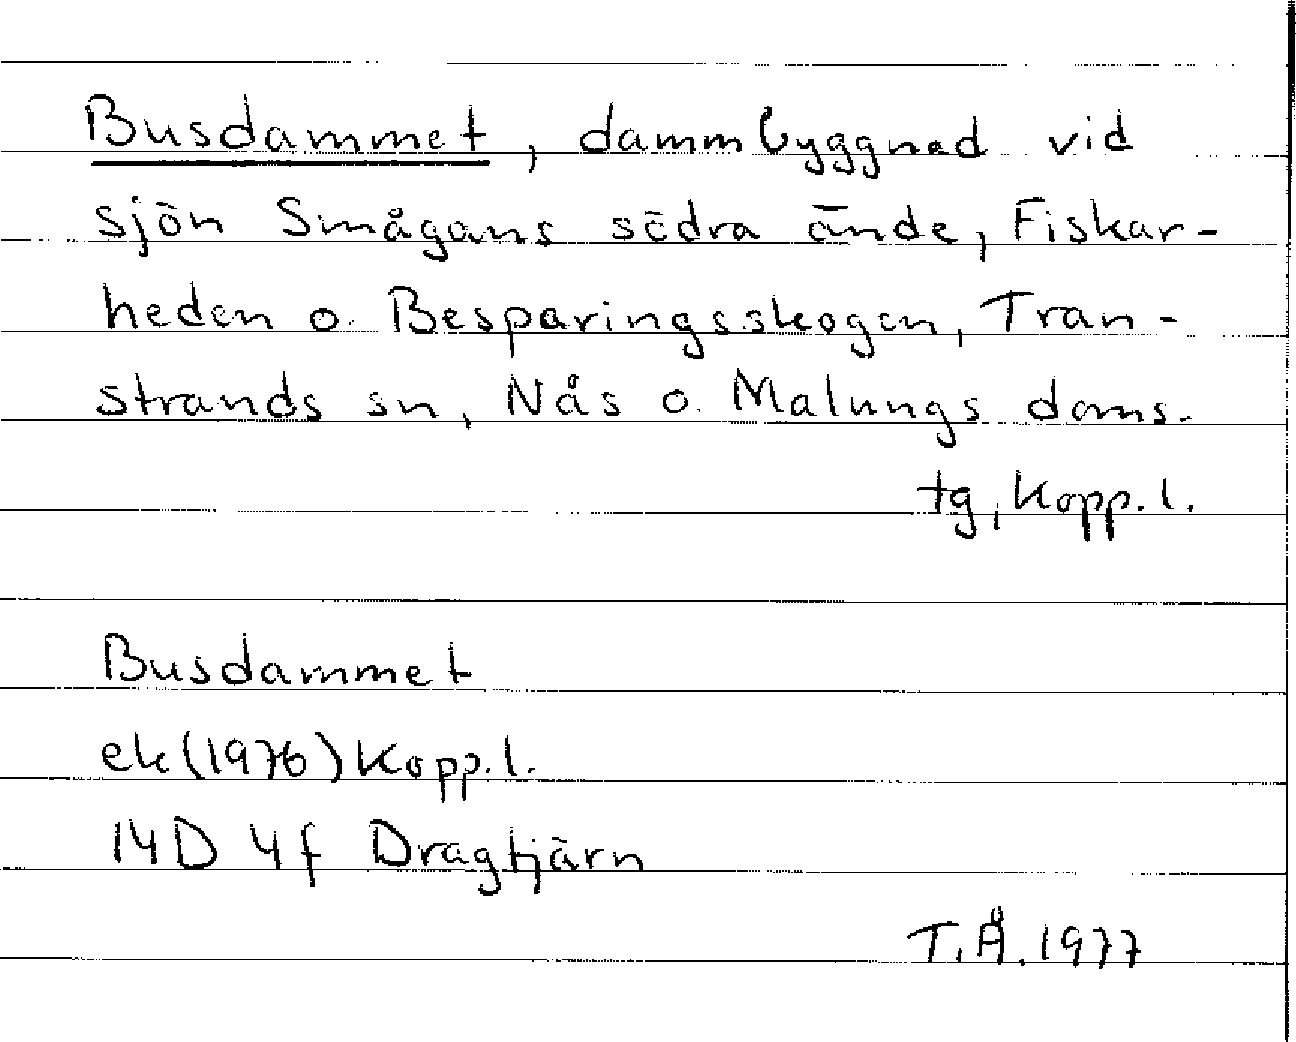 Busdammet, dammbyggnad vid
sjön Smågans södra ände, Fiskar-
heden o. Besparingsskogen, Tran-
strands sn, Nås o. Malungs doms.
tg, Kopp. l.
Busdammet
ek (1976) Kopp. l.
14D 4f Dragtjärn
T.Å. 1977